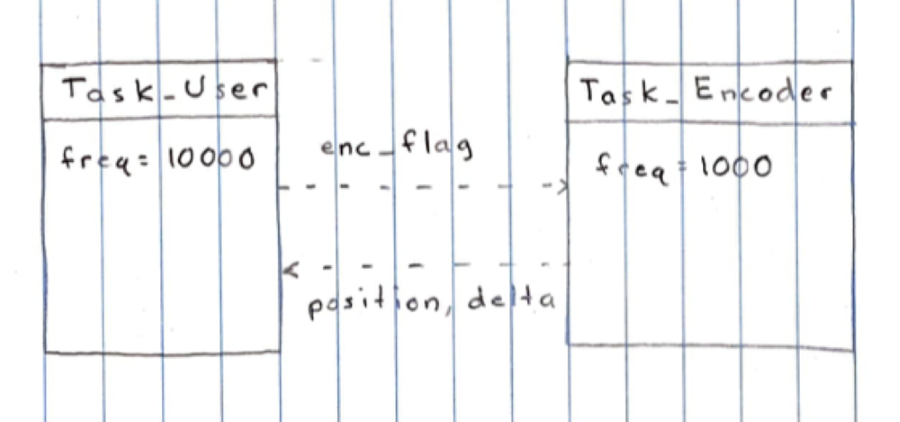 Task_User
freq = 10000
enc_flag
position, delta
Task_Encoder
freq = 1000